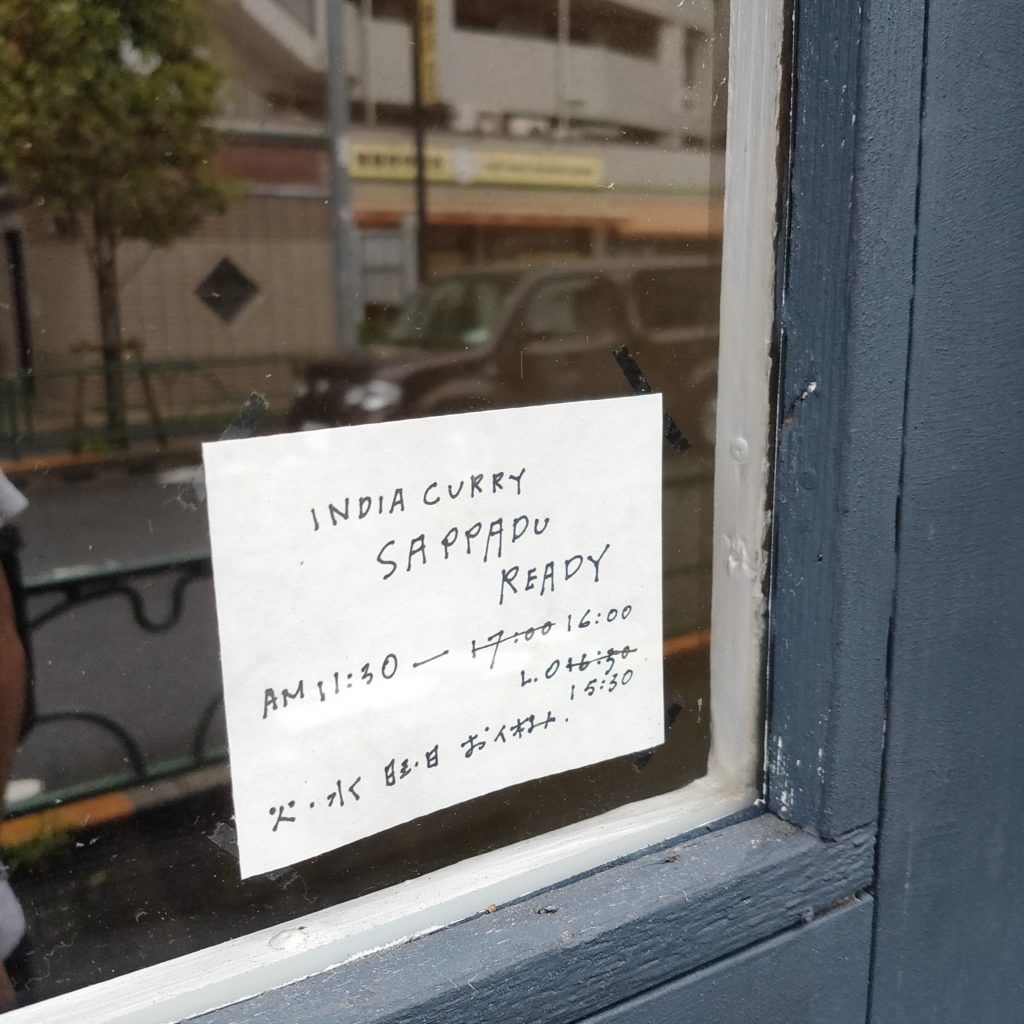 INDIA CURRY
SAPPADU
READY
AM 11:30 — 17:00 16:00
L.O 16:30
15:30
火・水 曜日 お休み.